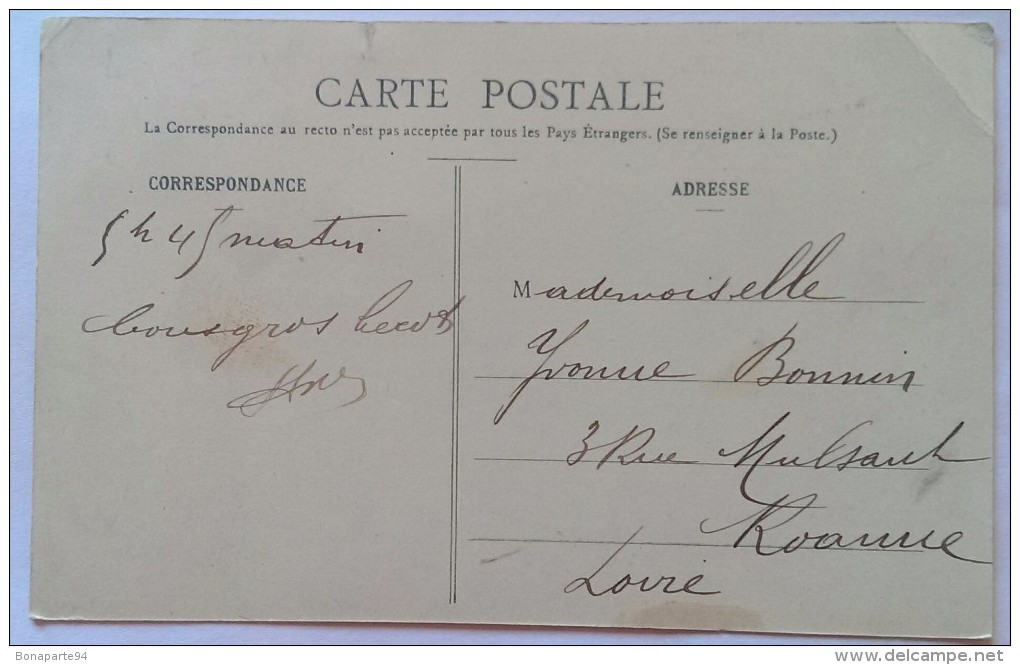 CARTE POSTALE
La Correspondance au recto n'est pas acceptée par tous les Pays Étrangers. (Se renseigner à la Poste.)
CORRESPONDANCE
5 h 45 matin
gros
ADRESSE
Mademoiselle
Yvonne Bonnin
3 Rue Mulsant
Roanne
Loire
Bonaparte94
www.delcampe.net